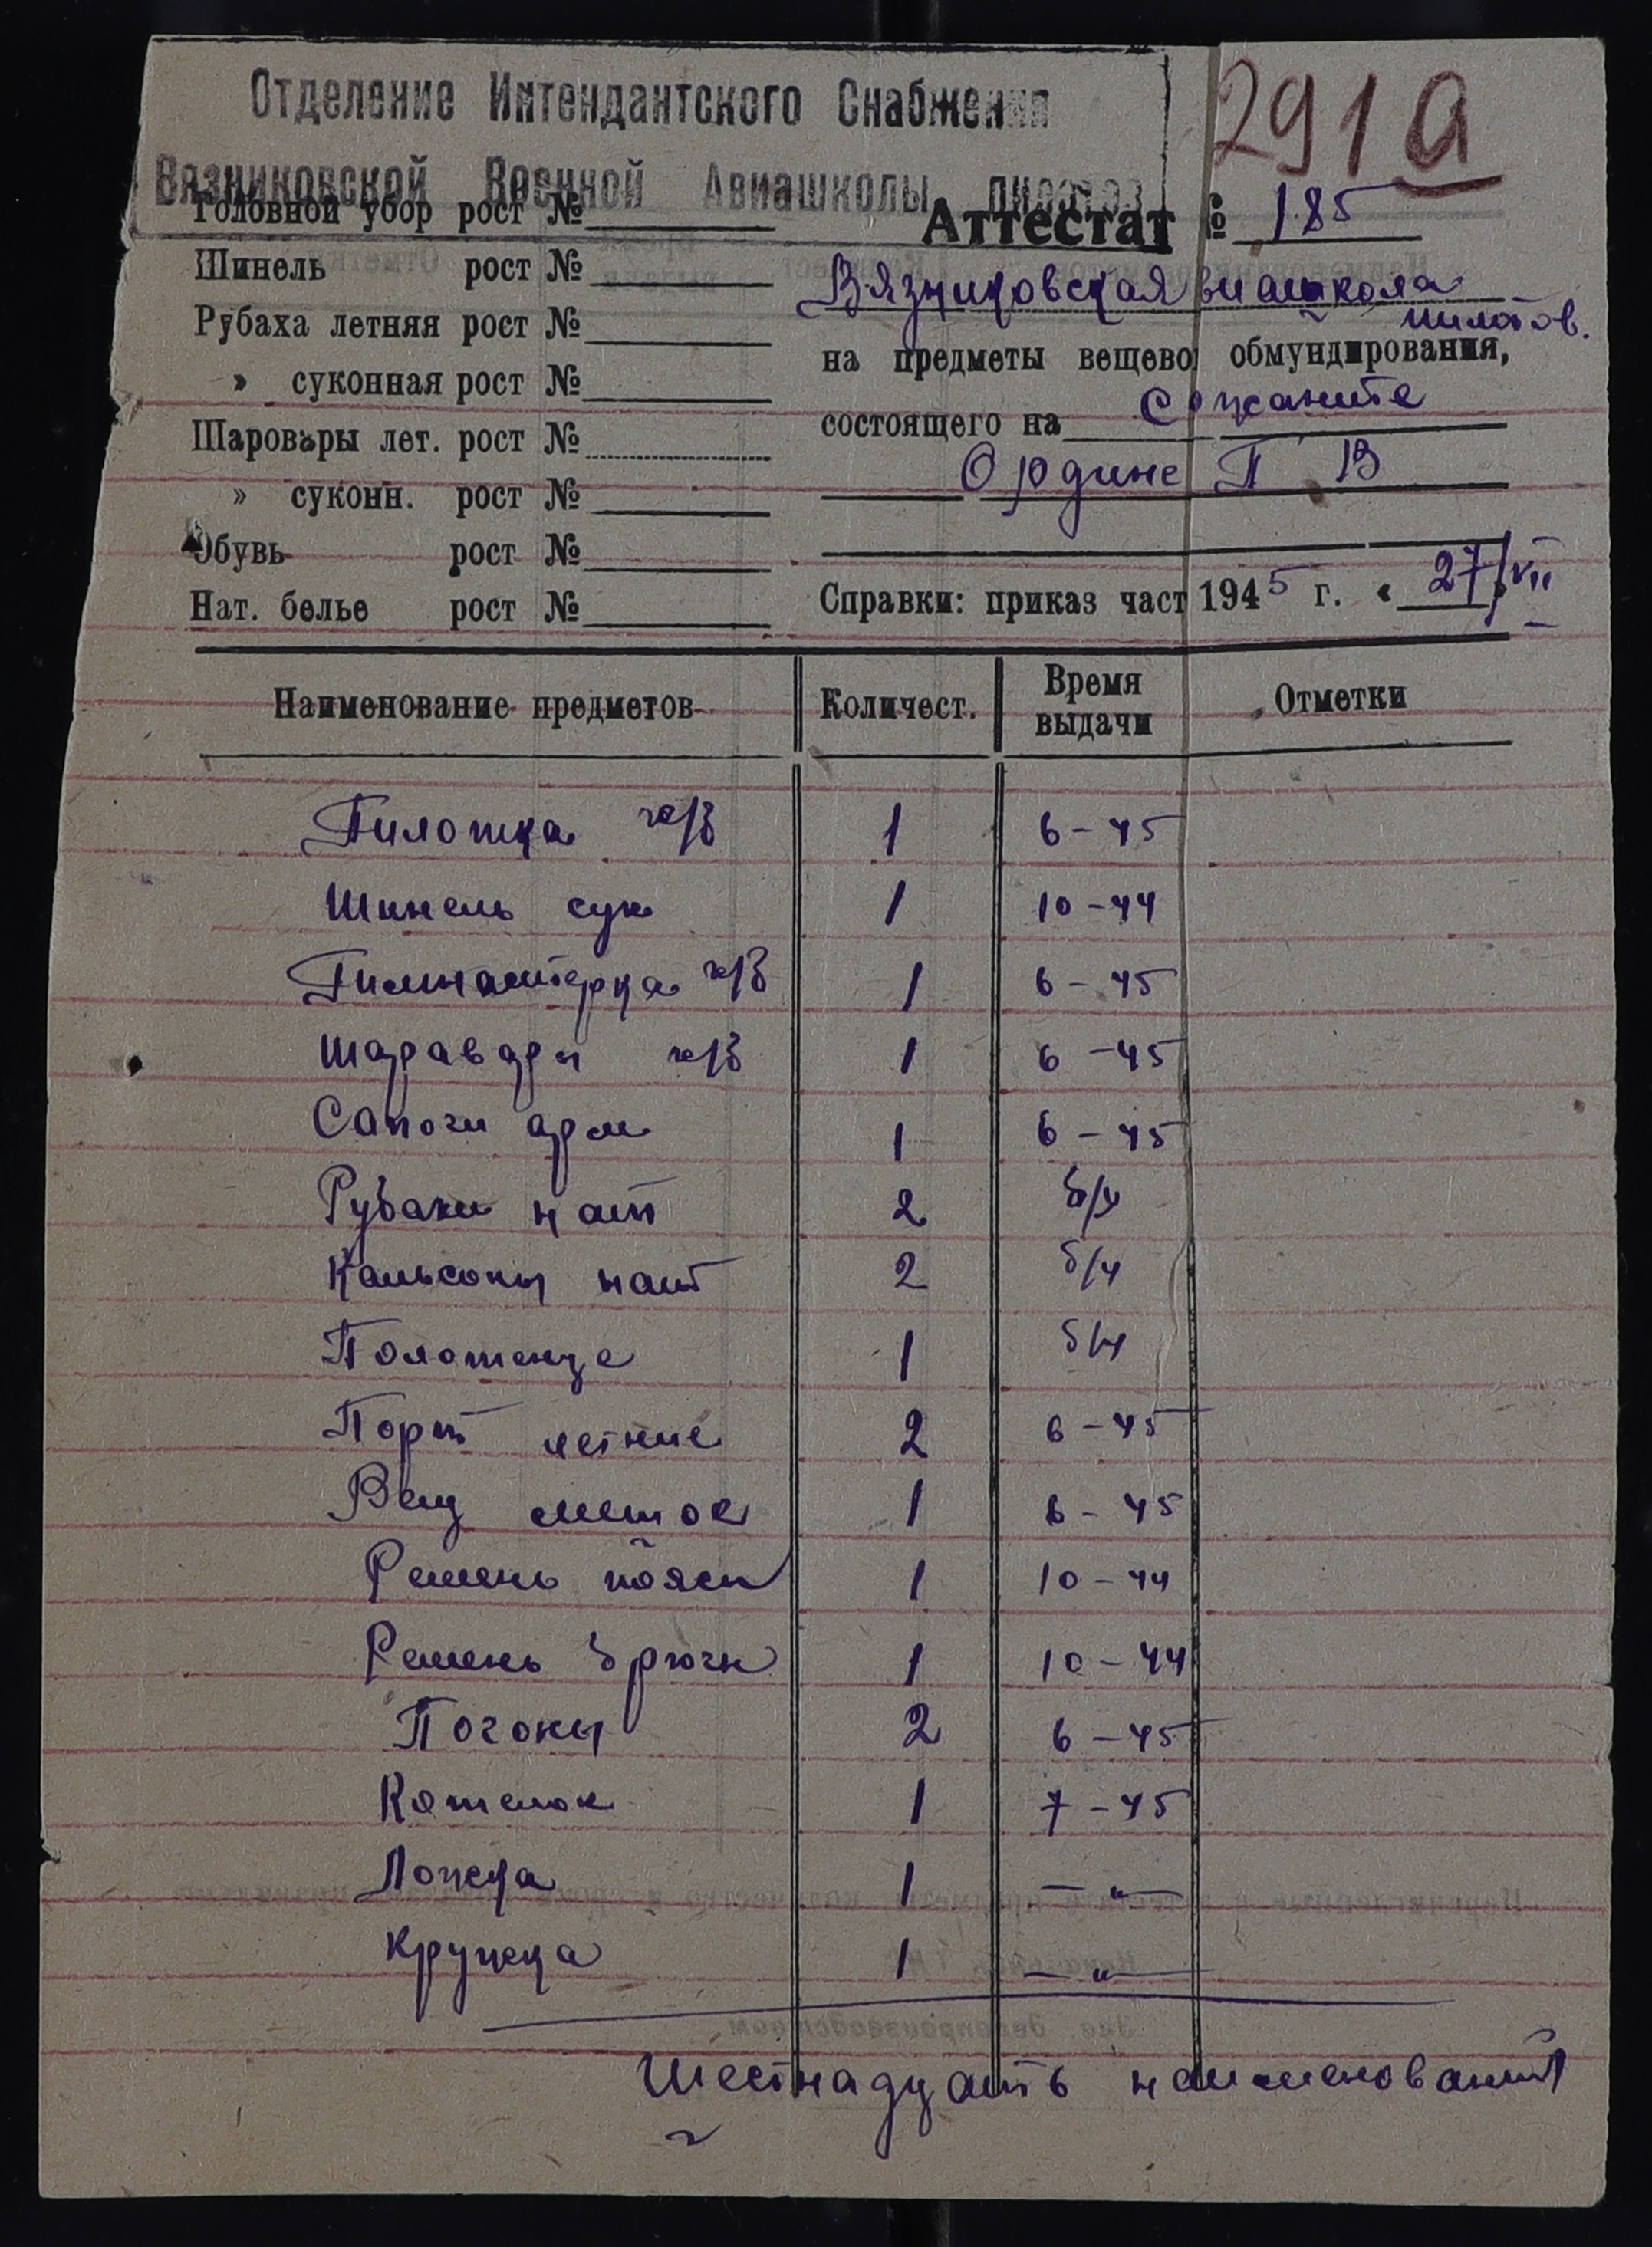 Отделение Интендантского Снабжения
Вязниковской Военной Авиашколы пилотов
291а
Головной убор рост №
Шинель рост №
Рубаха летняя рост №
» суконная рост №
Шаровары лет. рост №
» суконн. рост №
Обувь рост №
Нат. белье рост №
Аттестат № 185
Вязниковская виашкола
пилотов.
на предметы вещево обмундирования,
состоящего на
Ордине П В
Справки: приказ част 1945 г. « 27/VII
Наименование предметов Количест. Время выдачи Отметки
Пилотка х/б 1 6-45
Шинель сук 1 10-44
Гимнастерка х/б 1 6-45
Шаравары х/б 1 6-45
Сапоги арм 1 6-45
Рубахи нат 2 б/у
Кальсоны нат 2 б/у
Полотенце 1 б/у
Порт летние 2 6-45
Вещ мешок 1 6-45
Ремень поясн 1 10-44
Ремень брючн 1 10-44
Погоны 2 6-45
Котелок 1 7-45
Ложка 1 -"-
Кружка 1 -"-
Шестнадцать наименований